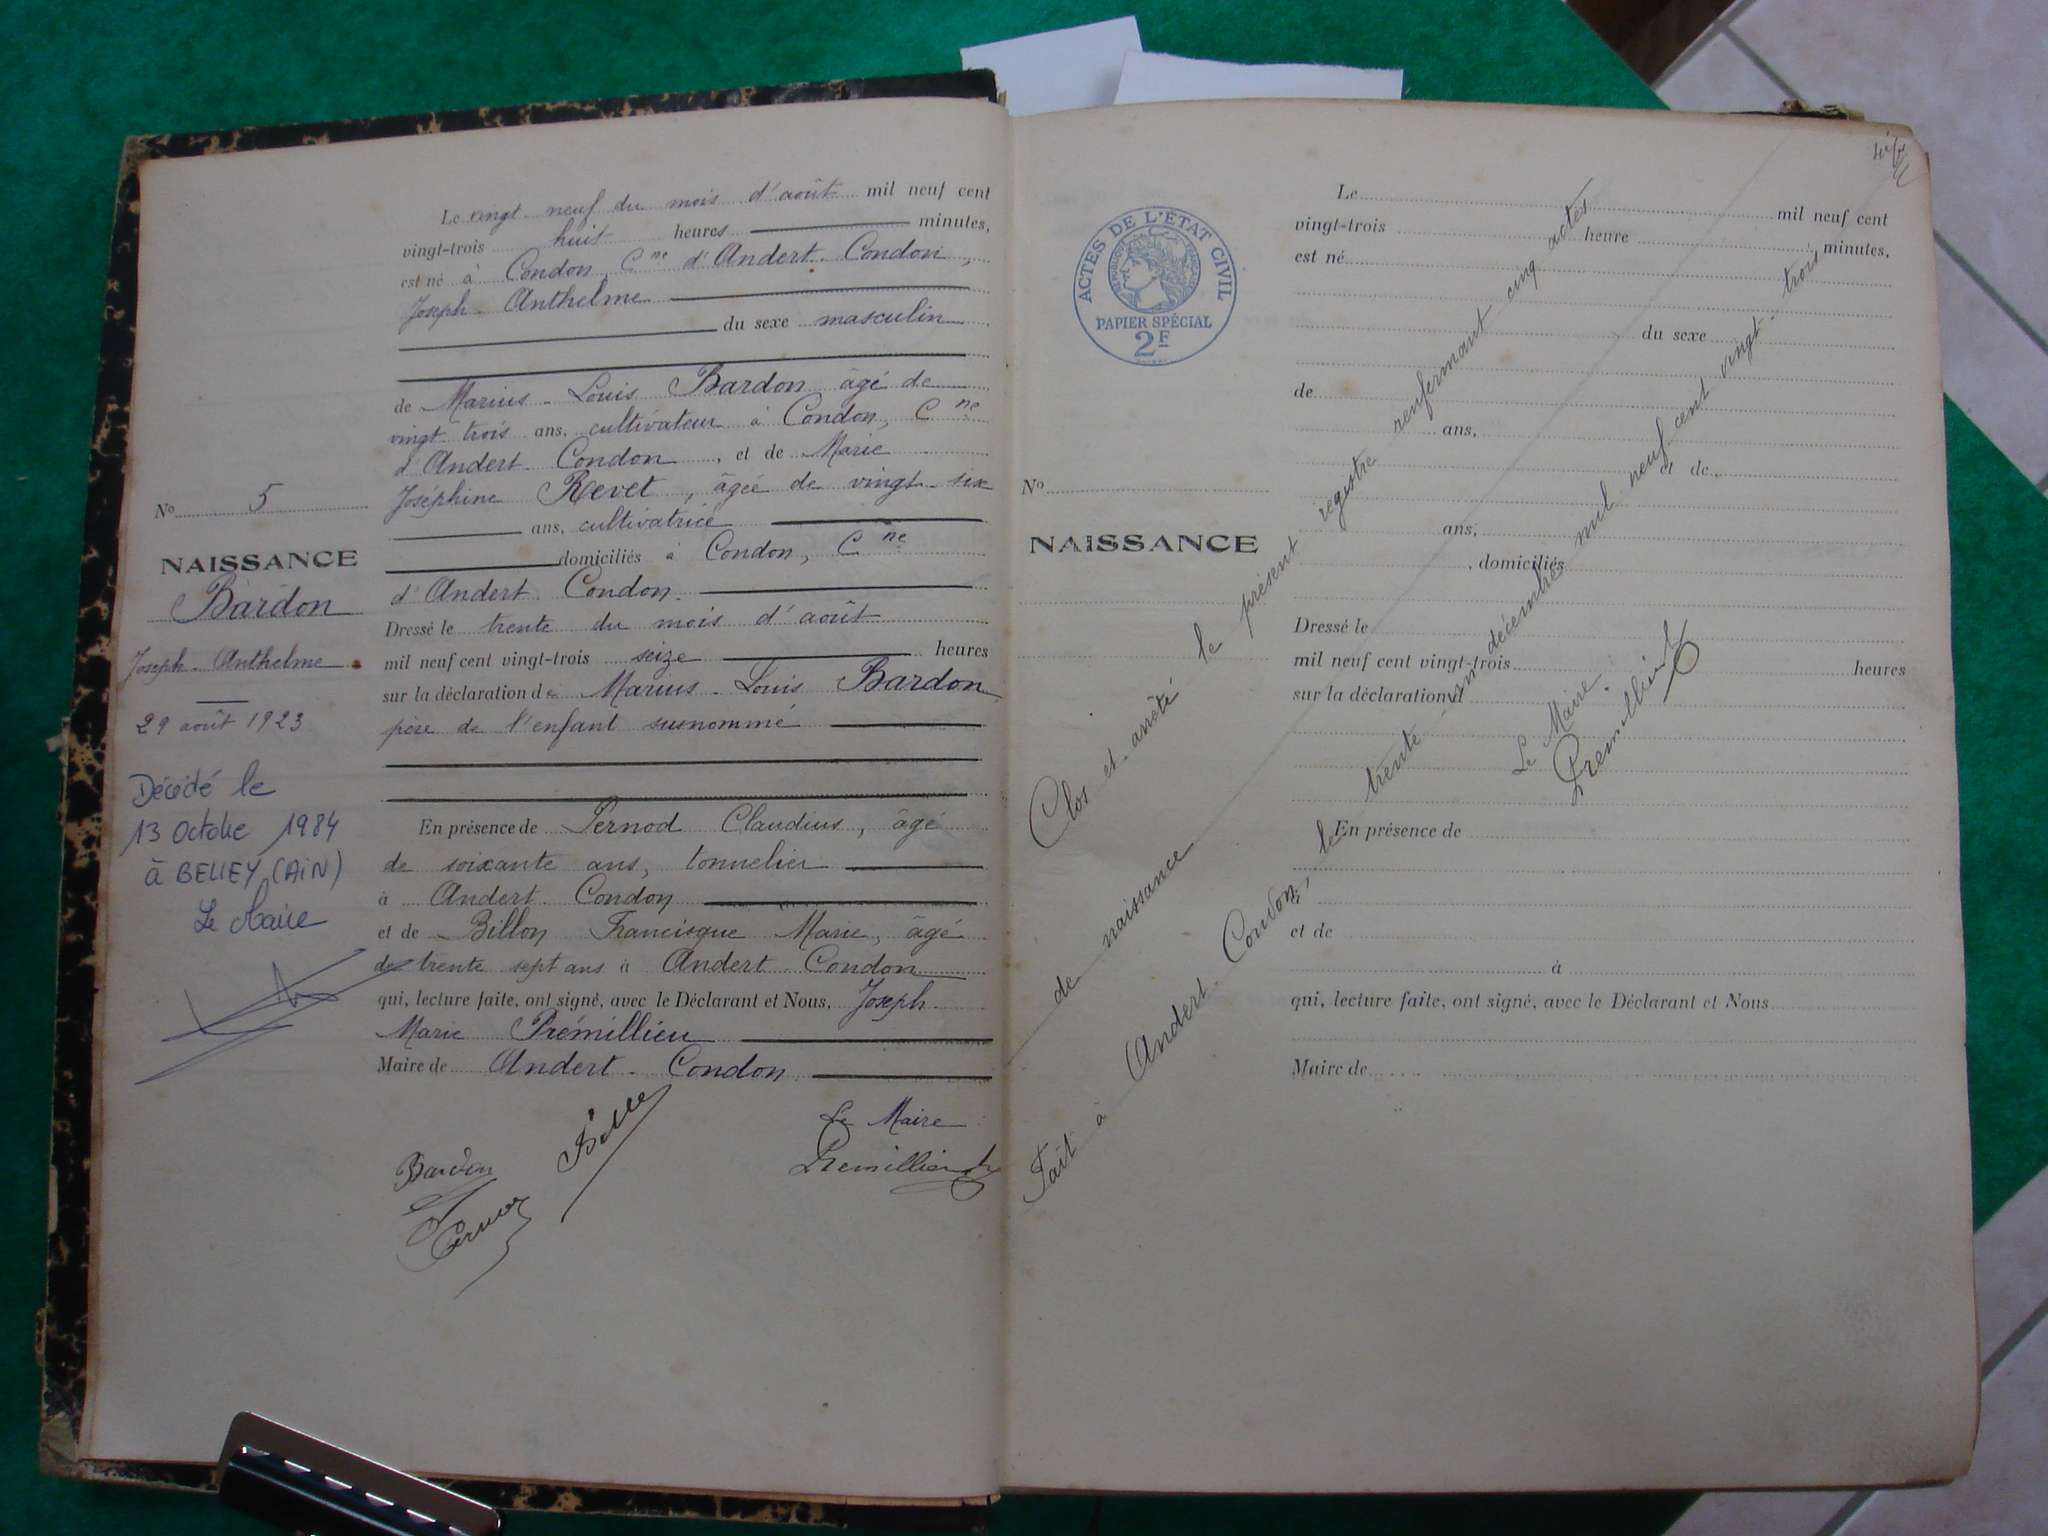 Le vingt neuf du mois d'août mil neuf cent
vingt-trois huit heures minutes,
est né à Condon, Cne d'Andert-Condon,
Joseph-Anthelme
du sexe masculin
de Marius-Louis Bardon âgé de
vingt trois ans, cultivateur à Condon, Cne
d'Andert-Condon, et de Marie
Joséphine Revet, âgée de vingt-six
ans, cultivatrice
domiciliés à Condon, Cne
d'Andert-Condon.
Dressé le trente du mois d'août
mil neuf cent vingt-trois seize heures
sur la déclaration de Marius-Louis Bardon
père de l'enfant susnommé
En présence de Pernod Claudius, âgé
de soixante ans, tonnelier
à Andert-Condon
et de Billon Francisque Marie, âgé
de trente sept ans à Andert-Condon
qui, lecture faite, ont signé, avec le Déclarant et Nous, Joseph-
Marie Prémillieu
Maire de Andert-Condon
Le Maire :
Bardon
Premillieu
No 5
NAISSANCE
Bardon
Joseph-Anthelme
29 août 1923
Décédé le
13 Octobre 1984
à BELLEY (AIN)
Le Maire
ACTES DE L'ÉTAT CIVIL
PAPIER SPÉCIAL
2F
No
NAISSANCE
Le mil neuf cent
vingt-trois heure minutes,
est né
du sexe
de
ans,
et de
ans,
, domiciliés
Dressé le
mil neuf cent vingt-trois heures
sur la déclaration d
En présence de
et de
à
qui, lecture faite, ont signé, avec le Déclarant et Nous
Maire de
Clos et arrêté le présent registre renfermant cinq actes
de naissance
Fait à Andert-Condon, le trente un décembre mil neuf cent vingt-trois
Le Maire :
Premillieu